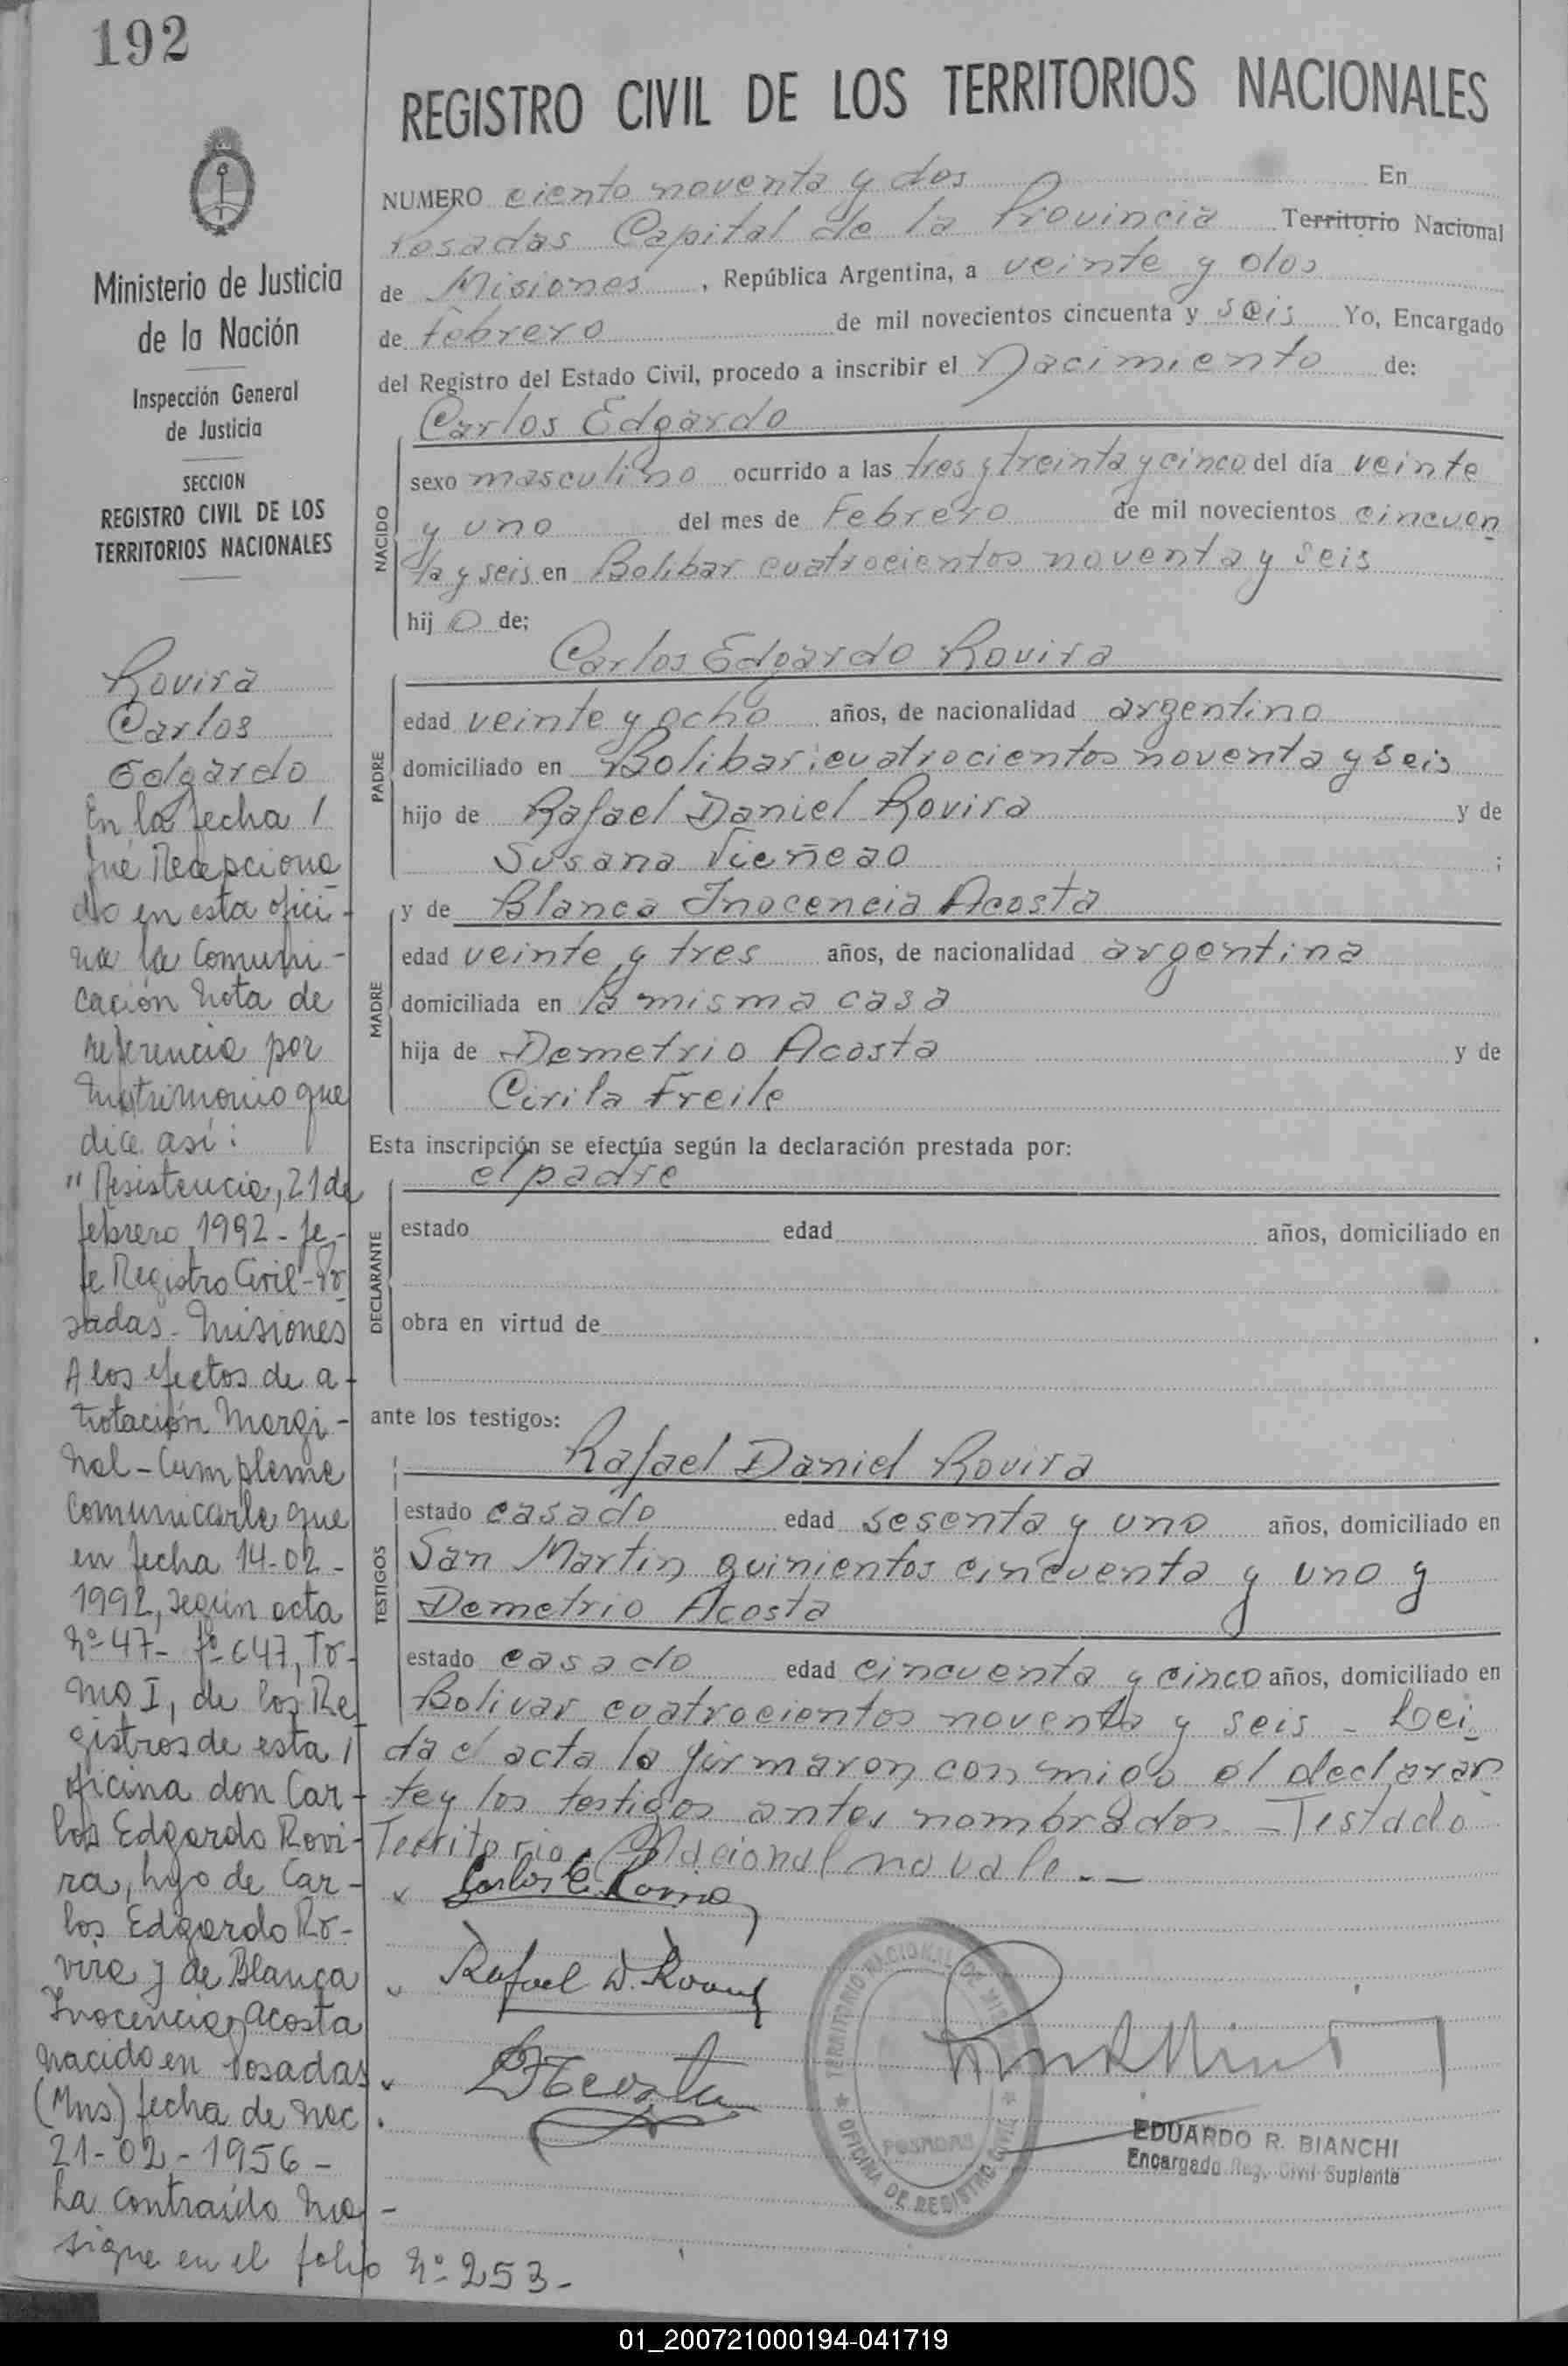 192
Ministerio de Justicia
de la Nación
Inspección General
de Justicia
SECCION
REGISTRO CIVIL DE LOS
TERRITORIOS NACIONALES
Rovira
Carlos
Edgardo
En la fecha
fué Recepciona
do en esta ofici-
na la Comuni-
cación Nota de
referencia por
Matrimonio que
dice así:
"Resistencia, 21 de
febrero 1992 - Je-
fe Registro Civil - Po
sadas - Misiones
A los efectos de a-
notación Margi-
nal - Cumpleme
Comunicarle que
en fecha 14-02-
1992, según acta
Nº 47 - fº 647, To-
mo I, de los Re
gistros de esta
oficina don Car-
los Edgardo Rovi-
ra, hijo de Car-
los Edgardo Ro-
vira y de Blanca
Inocencia Acosta
Nacido en Posadas
(Mns.) fecha de Nac.
21-02-1956 -
ha contraído Ma-
sigue en el folio Nº 253-
REGISTRO CIVIL DE LOS TERRITORIOS NACIONALES
NUMERO ciento noventa y dos En
Posadas Capital de la Provincia Territorio Nacional
de Misiones, República Argentina, a veinte y dos
de Febrero de mil novecientos cincuenta y seis Yo, Encargado
del Registro del Estado Civil, procedo a inscribir el Nacimiento de:
Carlos Edgardo
NACIDO
sexo masculino ocurrido a las tres y treinta y cinco del día veinte
y uno del mes de Febrero de mil novecientos cincuen
ta y seis en Bolibar cuatrocientos noventa y seis
hijo de;
Carlos Edgardo Rovira
PADRE
edad veinte y ocho años, de nacionalidad argentino
domiciliado en Bolibar cuatrocientos noventa y seis
hijo de Rafael Daniel Rovira y de
Susana ;
y de Blanca Inocencia Acosta
MADRE
edad veinte y tres años, de nacionalidad argentina
domiciliada en la misma casa
hija de Demetrio Acosta y de
Cirila Freile
Esta inscripción se efectúa según la declaración prestada por:
el padre
DECLARANTE
estado edad años, domiciliado en
obra en virtud de
ante los testigos:
Rafael Daniel Rovira
TESTIGOS
estado casado edad sesenta y uno años, domiciliado en
San Martin quinientos cincuenta y uno y
Demetrio Acosta
estado casado edad cincuenta y cinco años, domiciliado en
Bolivar cuatrocientos noventa y seis - Lei
da el acta la firmaron conmigo el declaran
te y los testigos antes nombrados - Testado
Territorio Nacional no vale. -
Carlos E. Rovira
Rafael D. Rovira
D Acosta
TERRITORIO NACIONAL DE MISIONES
OFICINA DE REGISTRO CIVIL
POSADAS
EDUARDO R. BIANCHI
Encargado Reg. Civil Suplente
01_200721000194-041719